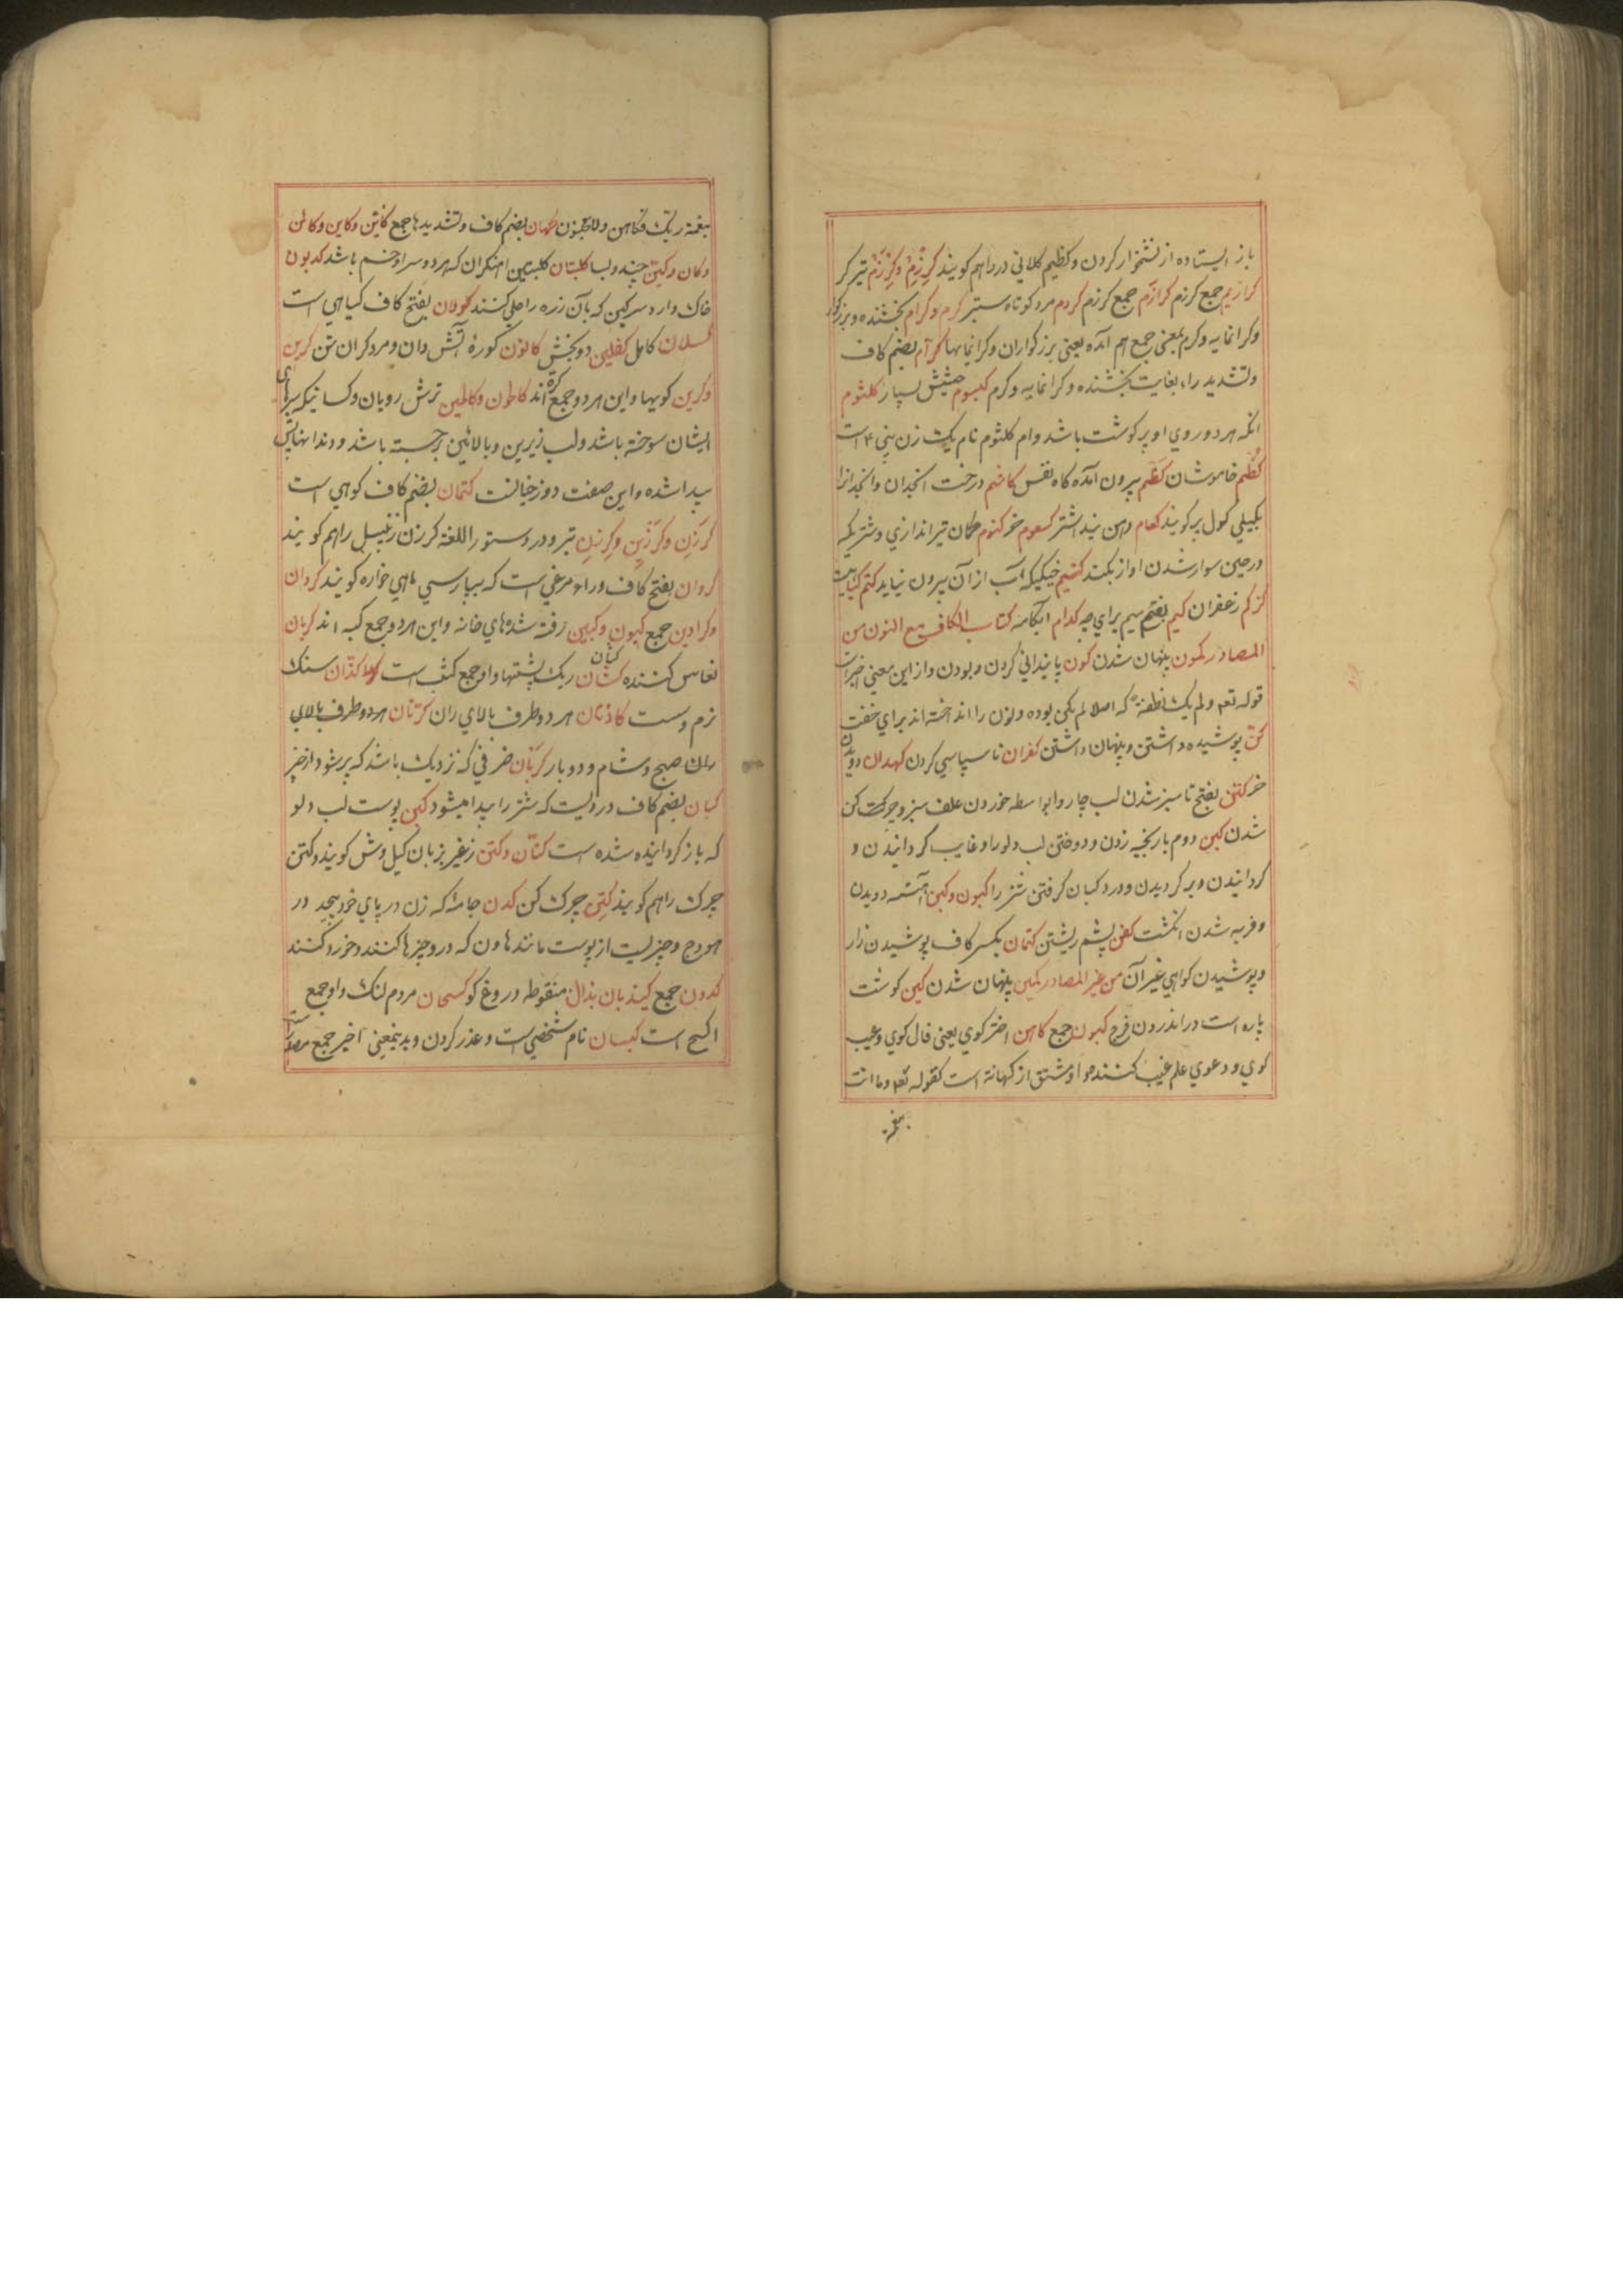 باز ایستاده از نشخوار کردن و کظیم کلانی در راهم کویند کرزم و کرزم تبر کر
کرازیم جمع کرزم کرازم جمع کرزم کردم مرد کوتاه ستبر کرم و کرام بخشنده و بزرکوار
و کرانمایه و کرم بمعنی جمع هم آمده یعنی بزرکواران و کرانمایها کرام بضم کاف
و تشدید راء بغایت بخشنده و کرانمایه و کرم کیسوم حشیش بسیار کلثوم
انکه هر دو روی او پر کوشت باشد و ام کلثوم نام یک زن است
کظم خاموشان کظم بیرون آمده کاه نفس درخت انجدان و انجدانرا
کول پر کویند کعام دهن بند اشتر کسعوم خر کتوم کمان تیر اندازی و شتریکه
در حین سوار شدن اواز نکند کتیم خیکیکه آب از آن بیرون نیاید کتم
کرکم زعفران کیم بفتح میم برای چه کدام آبکامه کتاب الکاف مع النون من
المصادر کمون پنهان شدن کون پایندانی کردن و بودن و از این معنی
قوله تعه ولم یک نطفة که اصلا لم یکن بوده و نون را انداخته اند برای خفت
کن پوشیده داشتن و پنهان داشتن کفران ناسپاسی کردن کهدان دویدن
خر کتن بفتح تا سبز شدن لب چاروا بواسطه خوردن علف سبز و چرکن
شدن کبن دوم بار بخیه زدن و دوختن لب دلو را و غایب کردانیدن و
کردانیدن و برکردیدن و درد کبان کرفتن شتر را کبون و کبن آهسته دویدن
و فربه شدن انکشت کفن پشم ریشتن کتمان بکسر کاف پوشیدن راز
و پوشیدن کواهی غیر آن من غیر المصادر کمین پنهان شدن کین کوشت
پاره است در اندرون فرج کهون جمع کاهن اختر کوی یعنی فال کوی و غیب
کوی و دعوی علم غیب کننده و او مشتق از کهانة است کقوله تعه وما انت
بنعمة
بنعمة ربک بکاهن ولا مجنون کهان بضم کاف و تشدید ها جمع کاین و کاین و کائن
و کان و کین چند و بسا کلبتان کلبتین اهنکران که هر دو سر او خم باشد کدیون
خاک و ارد سرکین که بآن زره را جلی کنند کولان بفتح کاف کیاهی است
کسلان کاهل کفلین دو بخش کانون کوره آتش دان و مرد کران تن کرین
و کرین کویها و این هر دو جمع کره اند کالحون و کالحین ترش رویان و کسانیکه سرهای
ایشان سوخته باشد و لب زیرین و بالائین برجسته باشد و دندانهایش
پیدا شده و این صفت دوزخیانست کتمان بضم کاف کوهی است
کرزن و کرزین و کرزن تبر و در دستور اللغة کرزن زنبیل را هم کویند
کروان بفتح کاف و راء مرغی است که بپارسی ماهی خواره کویند کروان
و کراوین جمع کبون و کبین رفته شدهای خانه و این هر دو جمع کبه اند کریان
نعاس کننده کثبان ریک پشتها و او جمع کثیب است کذان سنک
نرم و سست کاذتان هر دو طرف بالای ران کرتان هر دو طرف بالای
ران صبح و شام و دو بار کربان ظرفی که نزدیک باشد که پر شود از چیز
کبان بضم کاف دردیست که شتر را پیدا میشود کبن پوست لب دلو
که باز کردانیده شده است کتان و کتن زغیر بزبان کیل وش کویند و کتن
چرک را هم کویند کتن چرک کن کدن جامه که زن در پای خود پیچد در
هودج و چیزیست از پوست مانند هاون که درو چیزها کنند و خورد کنند
کدون جمع کیذبان بذال منقوطه دروغ کو کسحان مردم لنک و او جمع
اکسح است کیسان نام شخصی است و عذر کردن و بدینمعنی اخیر جمع